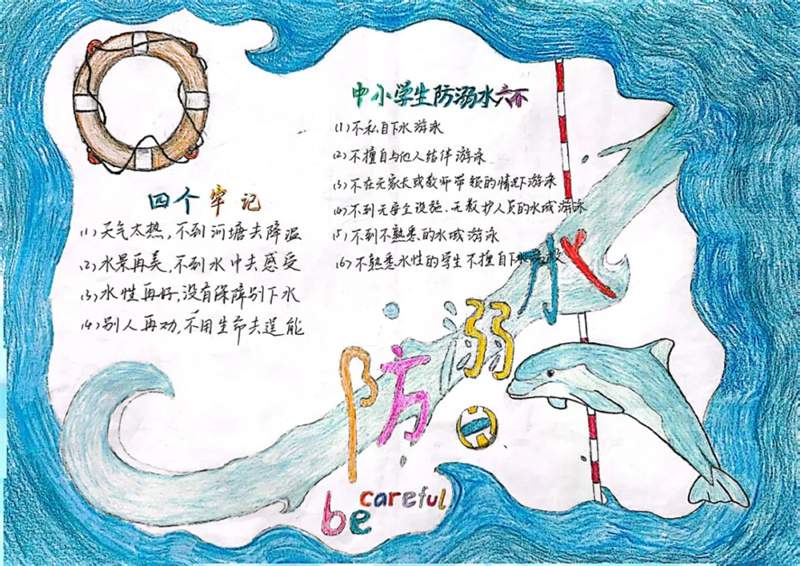 中小学生防溺水六不
(1)不私自下水游泳
(2)不擅自与他人结伴游泳
(3)不在无家长或教师带领的情况下游泳
(4)不到无安全设施、无救护人员的水域游泳
(5)不到不熟悉的水域游泳
(6)不熟悉水性的学生不擅自下水施救
四个牢记
(1)天气太热,不到河塘去降温
(2)水果再美,不到水中去感受
(3)水性再好,没有保障别下水
(4)别人再劝,不用生命去逞能
防溺水
be careful